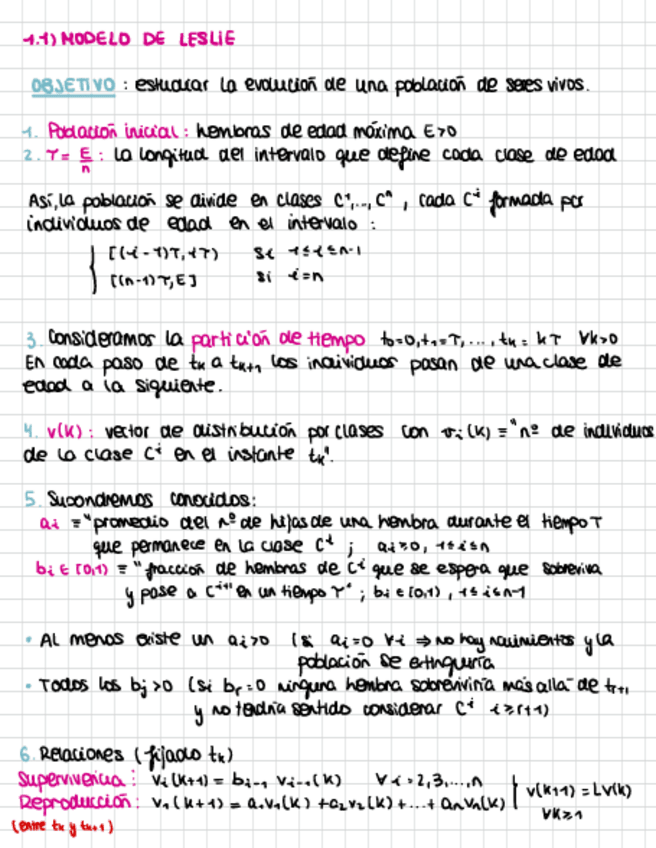 1.1) MODELO DE LESLIE
OBJETIVO : estudiar la evolución de una población de seres vivos.
1. Población inicial : hembras de edad máxima E>0
2. τ = E/n : La longitud del intervalo que define cada clase de edad
Así, la población se divide en clases C¹,..., Cⁿ , cada Cⁱ formada por
individuos de edad en el intervalo :
[(i-1)τ, iτ) si 1≤i≤n-1
[(n-1)τ, E] si i=n
3. Consideramos la partición de tiempo t₀=0, t₁=τ, ..., tₖ = kτ ∀k>0
En cada paso de tₖ a tₖ₊₁ los individuos pasan de una clase de
edad a la siguiente.
4. v(k) : vector de distribución por clases con vᵢ(k) ≡ "nº de individuos
de la clase Cⁱ en el instante tₖ".
5. Supondremos conocidos:
aᵢ ≡ "promedio del nº de hijas de una hembra durante el tiempo τ
que permanece en la clase Cⁱ ; aᵢ≥0, 1≤i≤n
bᵢ ∈ [0,1) ≡ "fracción de hembras de Cⁱ que se espera que sobreviva
y pase a Cⁱ⁺¹ en un tiempo τ" ; bᵢ ∈ [0,1) , 1≤i≤n-1
• Al menos existe un aᵢ>0 (si aᵢ=0 ∀i ⇒ no hay nacimientos y la
población se extinguiría
• Todos los bⱼ>0 (si bᵣ=0 ninguna hembra sobreviviría más allá de tᵣ₊₁
y no tendría sentido considerar Cⁱ i≥r+1)
6. Relaciones (fijado tₖ)
Supervivencia : vᵢ(k+1) = bᵢ₋₁ vᵢ₋₁(k) ∀i=2,3,...,n
Reproducción : v₁(k+1) = a₁v₁(k) + a₂v₂(k) + ... + aₙvₙ(k) } v(k+1) = Lv(k)
∀k≥1
(entre tₖ y tₖ₊₁)